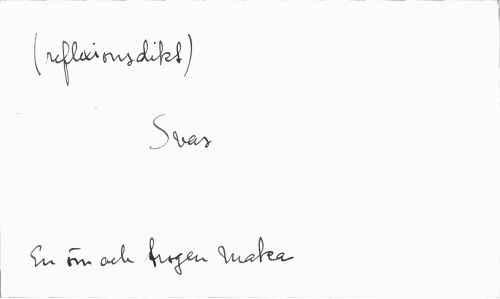 (reflexionsdikt)
Svar
En öm och trogen maka